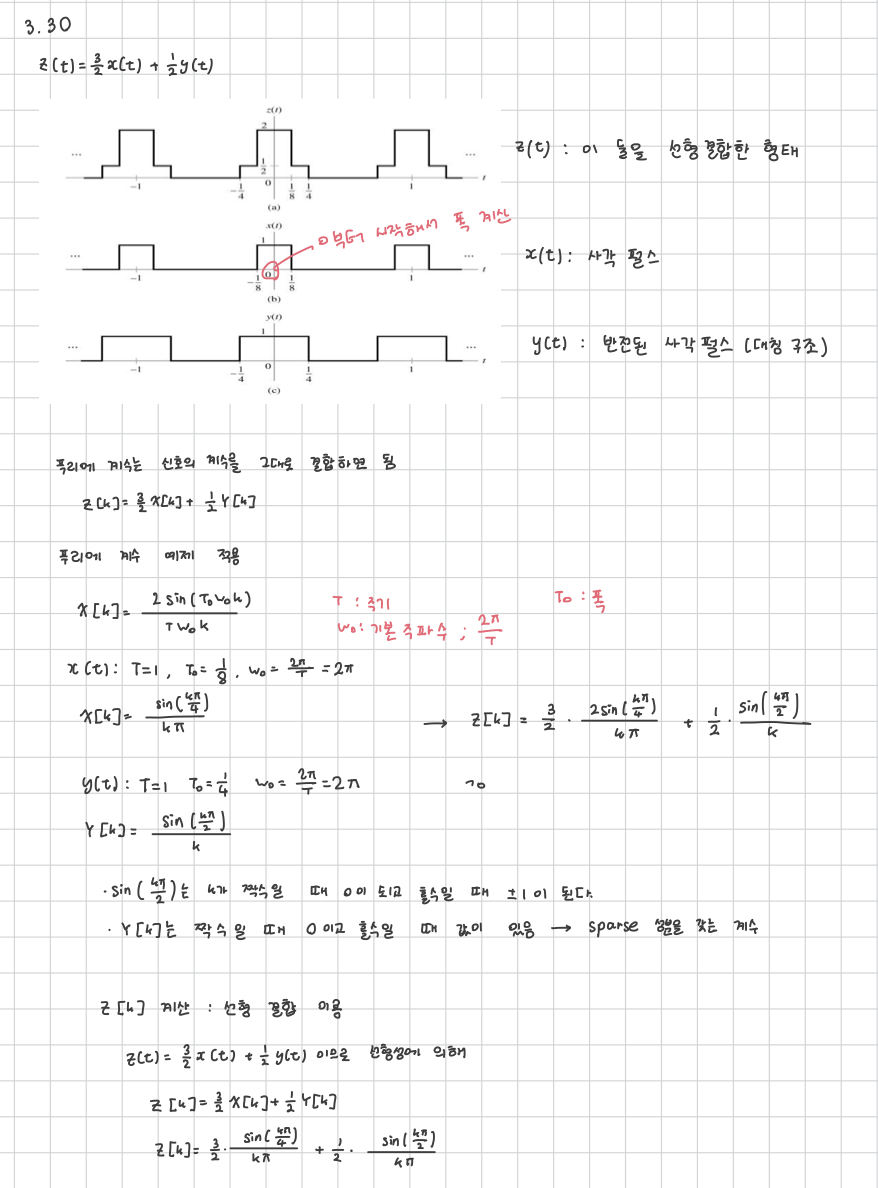 3.30
z(t) = 3/2 x(t) + 1/2 y(t)
z(t)
2
1/2
... ...
-1 -1/4 0 1/8 1/4 1 t
(a)
z(t) : 이 둘을 선형결합한 형태
x(t)
1
0부터 시작해서 폭 계산
... ...
-1 -1/8 0 1/8 1 t
(b)
x(t) : 사각 펄스
y(t)
1
... ...
-1 -1/4 0 1/4 1 t
(c)
y(t) : 반전된 사각 펄스 (대칭 구조)
푸리에 계수는 신호의 계수을 그대로 결합하면 됨
Z[k] = 3/2 X[k] + 1/2 Y[k]
푸리에 계수 예제 적용
X[k] = 2 sin(T₀ω₀k) / Tω₀k
T : 주기
T₀ : 폭
ω₀ : 기본 주파수 ; 2π/T
x(t) : T=1, T₀ = 1/8, ω₀ = 2π/T = 2π
X[k] = sin(kπ/4) / kπ → Z[k] = 3/2 · 2sin(kπ/4) / kπ + 1/2 · sin(kπ/2) / k
y(t) : T=1 T₀ = 1/4 ω₀ = 2π/T = 2π
Y[k] = sin(kπ/2) / k
· sin(kπ/2)는 k가 짝수일 때 0이 되고 홀수일 때 ±1이 된다.
· Y[k]는 짝수일 때 0이고 홀수일 때 값이 있음 → sparse 성분을 갖는 계수
Z[k] 계산 : 선형 결합 이용
z(t) = 3/2 x(t) + 1/2 y(t) 이므로 선형성에 의해
Z[k] = 3/2 X[k] + 1/2 Y[k]
Z[k] = 3/2 · sin(kπ/4) / kπ + 1/2 · sin(kπ/2) / kπ